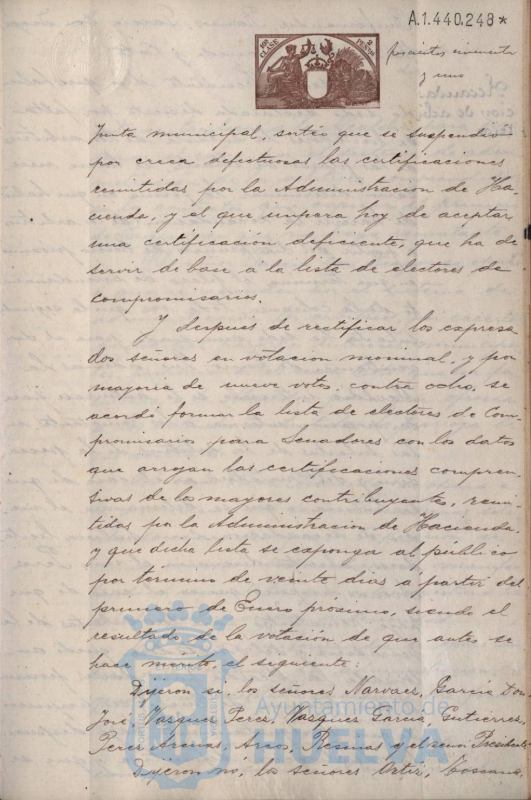 A.1.440.248*
10ª CLASE 2 PESETAS
y uno
Junta municipal, sorteo que se suspendió
por creerse defectuosas las certificaciones
remitidas por la Administracion de Ha-
cienda, y el que impera hoy de aceptar
una certificación deficiente, que ha de
servir de base á la lista de electores de
compromisarios.
Y después de rectificar los expresa
dos señores en votacion nominal, y por
mayoria de nueve votos, contra ocho, se
acordó formar la lista de electores de Com-
promisarios para Senadores con los datos
que arrojan las certificaciones compren-
sivas de los mayores contribuyentes, remi-
tidas por la Administracion de Hacienda
y que dicha lista se exponga al público
por término de veinte dias á partir del
primero de Enero próximo, siendo el
resultado de la votación de que antes se
hace mérito, el siguiente:
Dijeron si, los señores Narvaez, García Don
José, Vazquez Perez, Vazquez Garcia, Gutierrez,
Perez Arenas, Arcos, Resinas y el señor Presidente
Dijeron nó, los señores Ortiz,
Ayuntamiento de
HUELVA